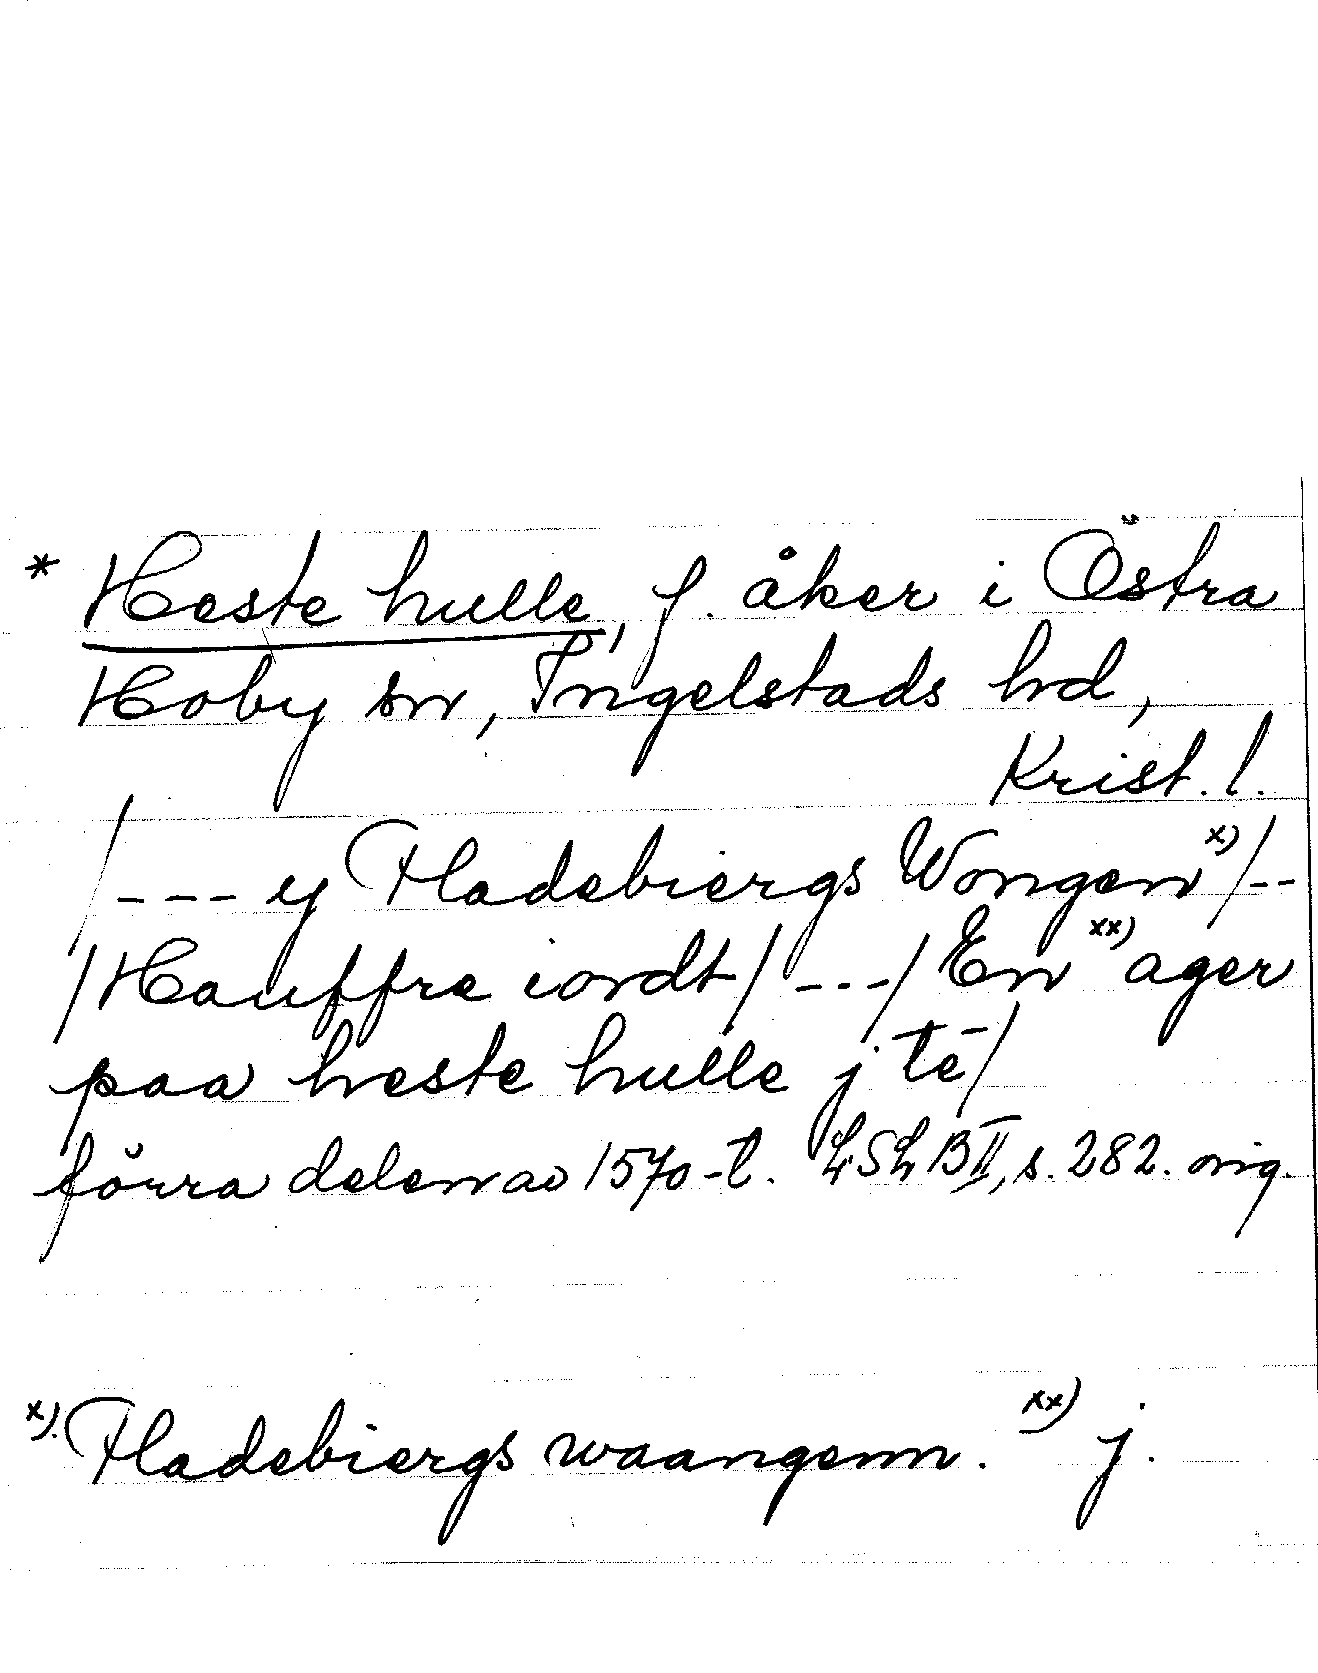 * Heste hulle, f. åker i Östra
Hoby sn, Ingelstads hd,
Krist. l.
/--- y Fladebiergs Wongen x)/--
/Hauffre iordt/ ---/ En xx) ager
paa heste hulle j te/
förra delen av 1570-t. LSLB II, s. 282. orig.
x). Fladebiergs waangenn. xx) j.